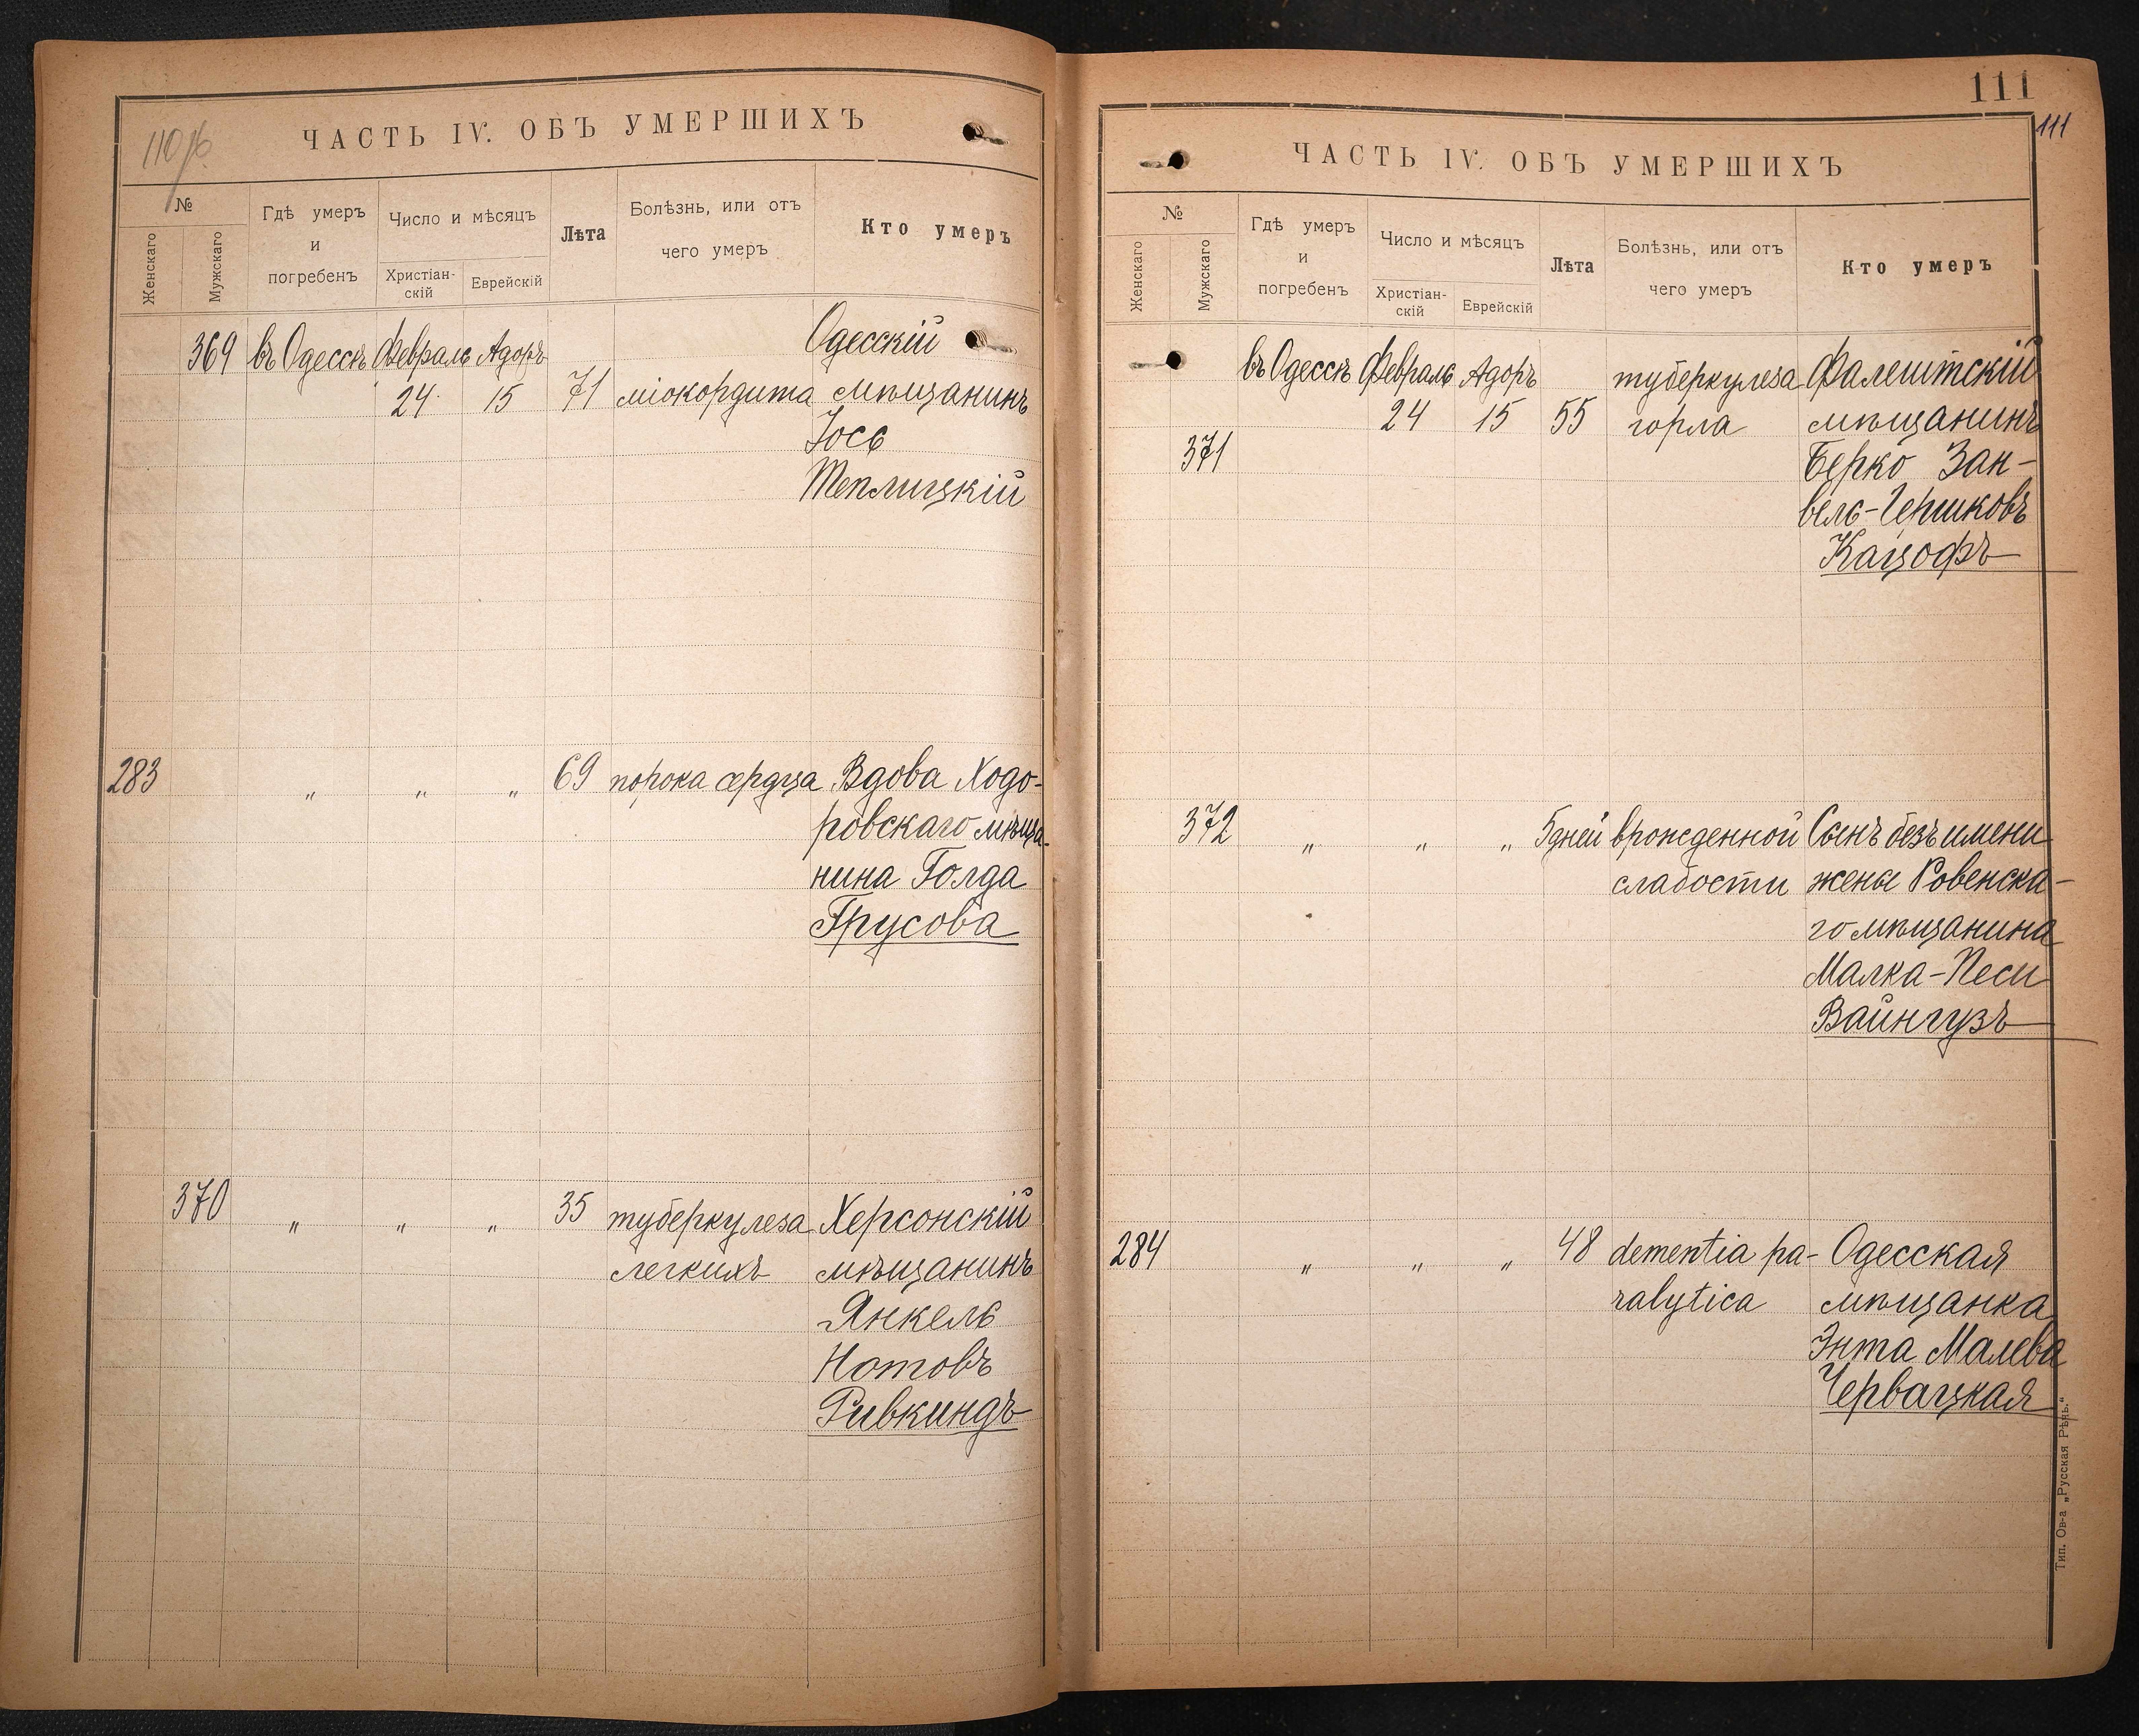 110 об
ЧАСТЬ IV. ОБЪ УМЕРШИХЪ
№
Женскаго
Мужскаго
Гдѣ умеръ
и
погребенъ
Число и мѣсяцъ
Христіан-
скій
Еврейскій
Лѣта
Болѣзнь, или отъ
чего умеръ
Кто умеръ
369 въ Одессѣ Февраль Адоръ Одесскій
24 15 71 міокордита мѣщанинъ
Іось
Теплицкій
283 " " " 69 порока сердца Вдова Ходо-
ровскаго мѣща-
нина Голда
Трусова
370 " " " 35 туберкулеза Херсонскій
легкихъ мѣщанинъ
Янкель
Нотовъ
Ривкиндъ
111
111
ЧАСТЬ IV. ОБЪ УМЕРШИХЪ
№
Женскаго
Мужскаго
Гдѣ умеръ
и
погребенъ
Число и мѣсяцъ
Христіан-
скій
Еврейскій
Лѣта
Болѣзнь, или отъ
чего умеръ
Кто умеръ
въ Одессѣ Февраль Адоръ туберкулеза Фалештскій
24 15 55 горла мѣщанинъ
371 Берко Зан-
вель-Гершковъ
Кацофъ
372 " " " 5 дней врожденной Сынъ безъ имени
слабости жены Ровенска-
го мѣщанина
Малка-Песи
Вайнгузъ
284 " " " 48 dementia pa- Одесская
ralytica мѣщанка
Энта Малева
Червацкая
Тип. Ов-а „Русская Рѣчь.“